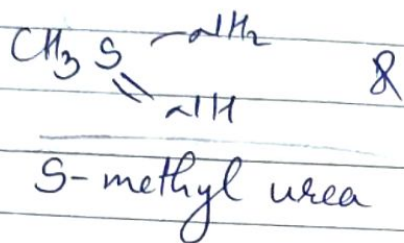 CH₃ S - NH₂ &
= NH
S-methyl urea